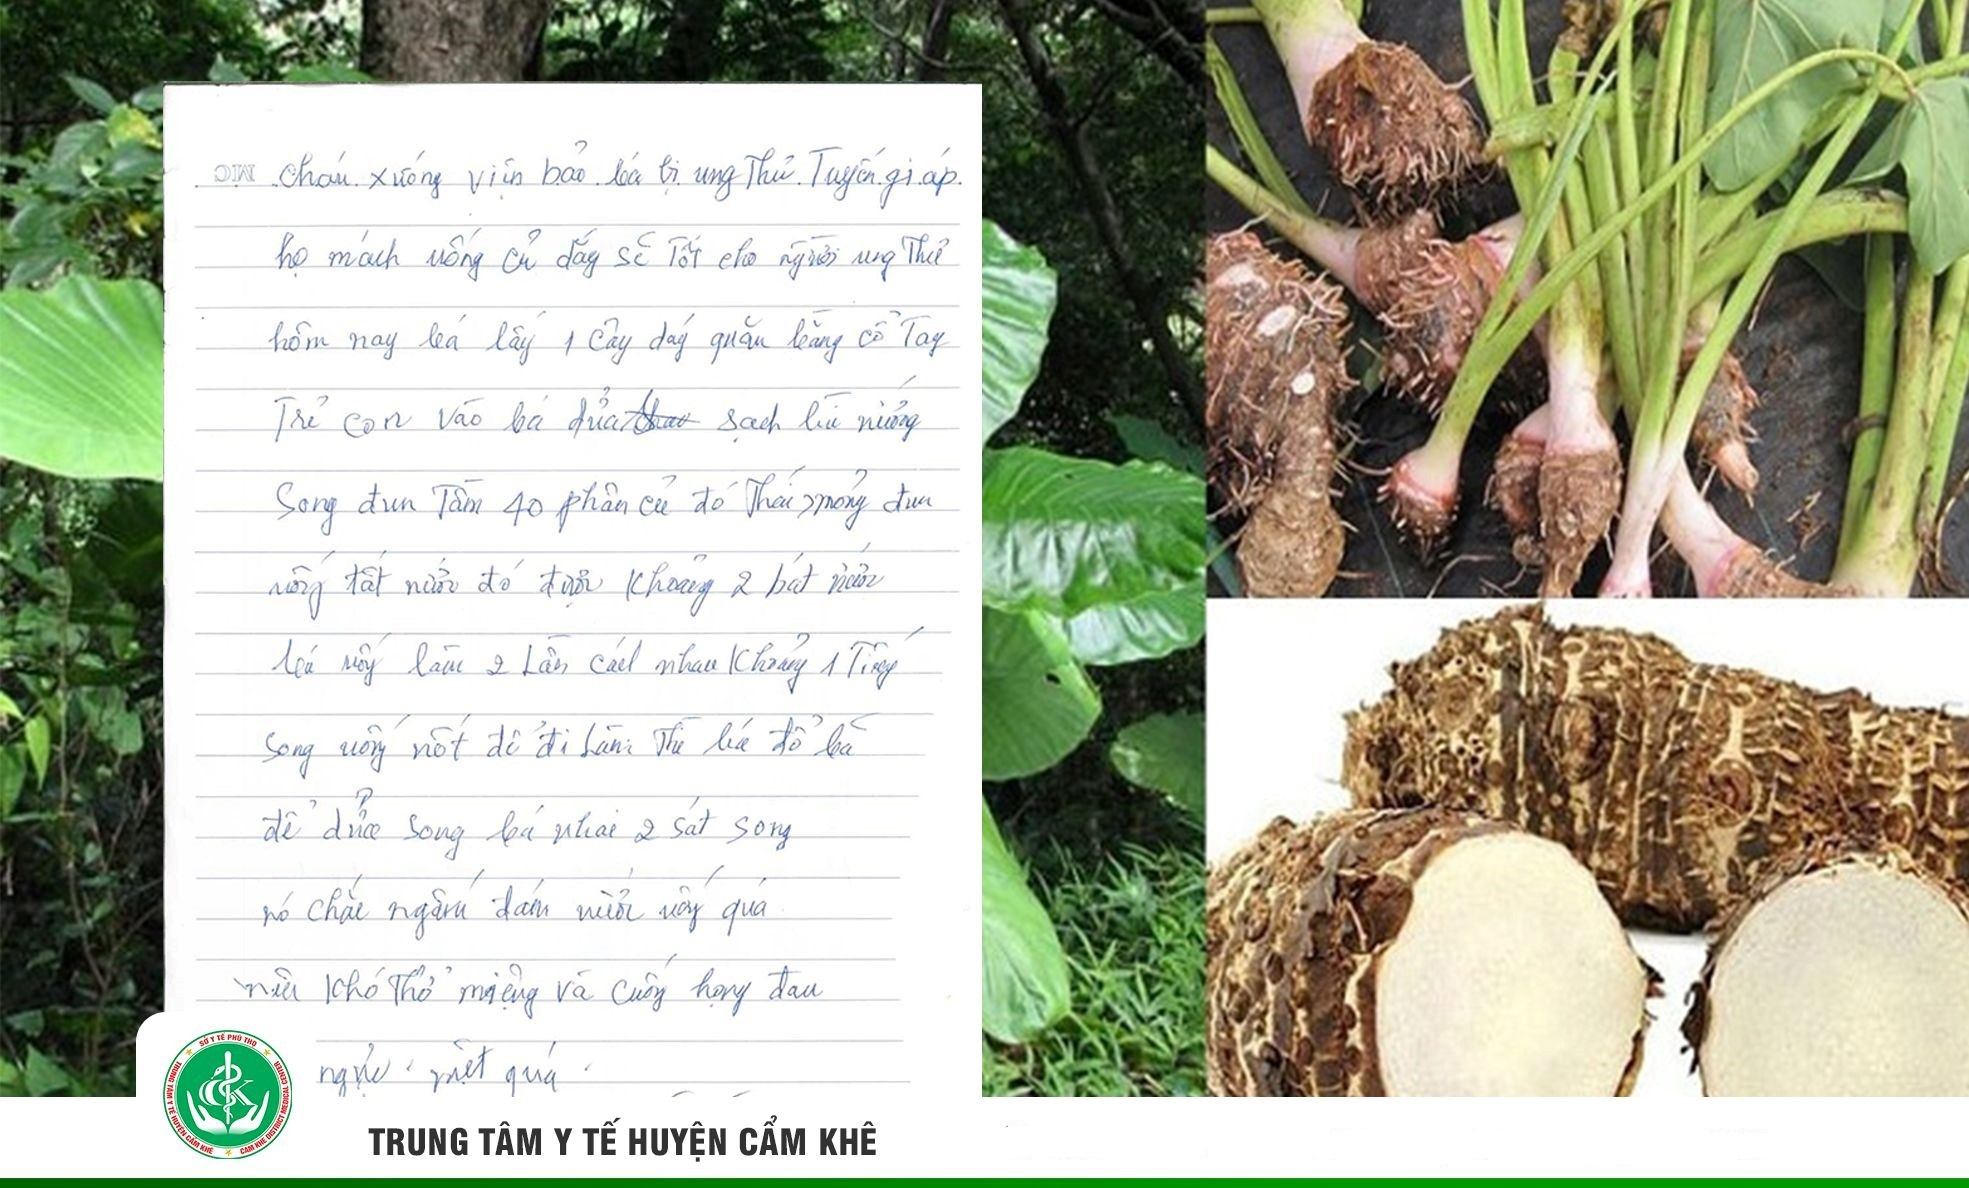 MC
cháu xuống viện bảo bá bị ung Thư Tuyến gi áp.
họ mách uống củ dáy sẽ Tốt cho người ung Thư
hôm nay bá lấy 1 cây dáy quăn bằng cổ Tay
Trẻ con vào bá rửa sạch
Song đun Tầm 40 phần củ đó Thái mỏng đun
uống tất nước đó được Khoảng 2 bát nước
bá uống làm 2 Lần cách nhau Khoảng 1 Tiếng
Song uống nốt để đi Làm Thì bá đổ bã
để rửa song bá nhai 2 sát song
nó chắc ngấm đám nước uống quá
nên Khó Thở miệng và Cuống họng đau
ngực mệt quá
SỞ Y TẾ PHÚ THỌ
TRUNG TÂM Y TẾ HUYỆN CẨM KHÊ
CAM KHE DISTRICT MEDICAL CENTER
CK
TRUNG TÂM Y TẾ HUYỆN CẨM KHÊ